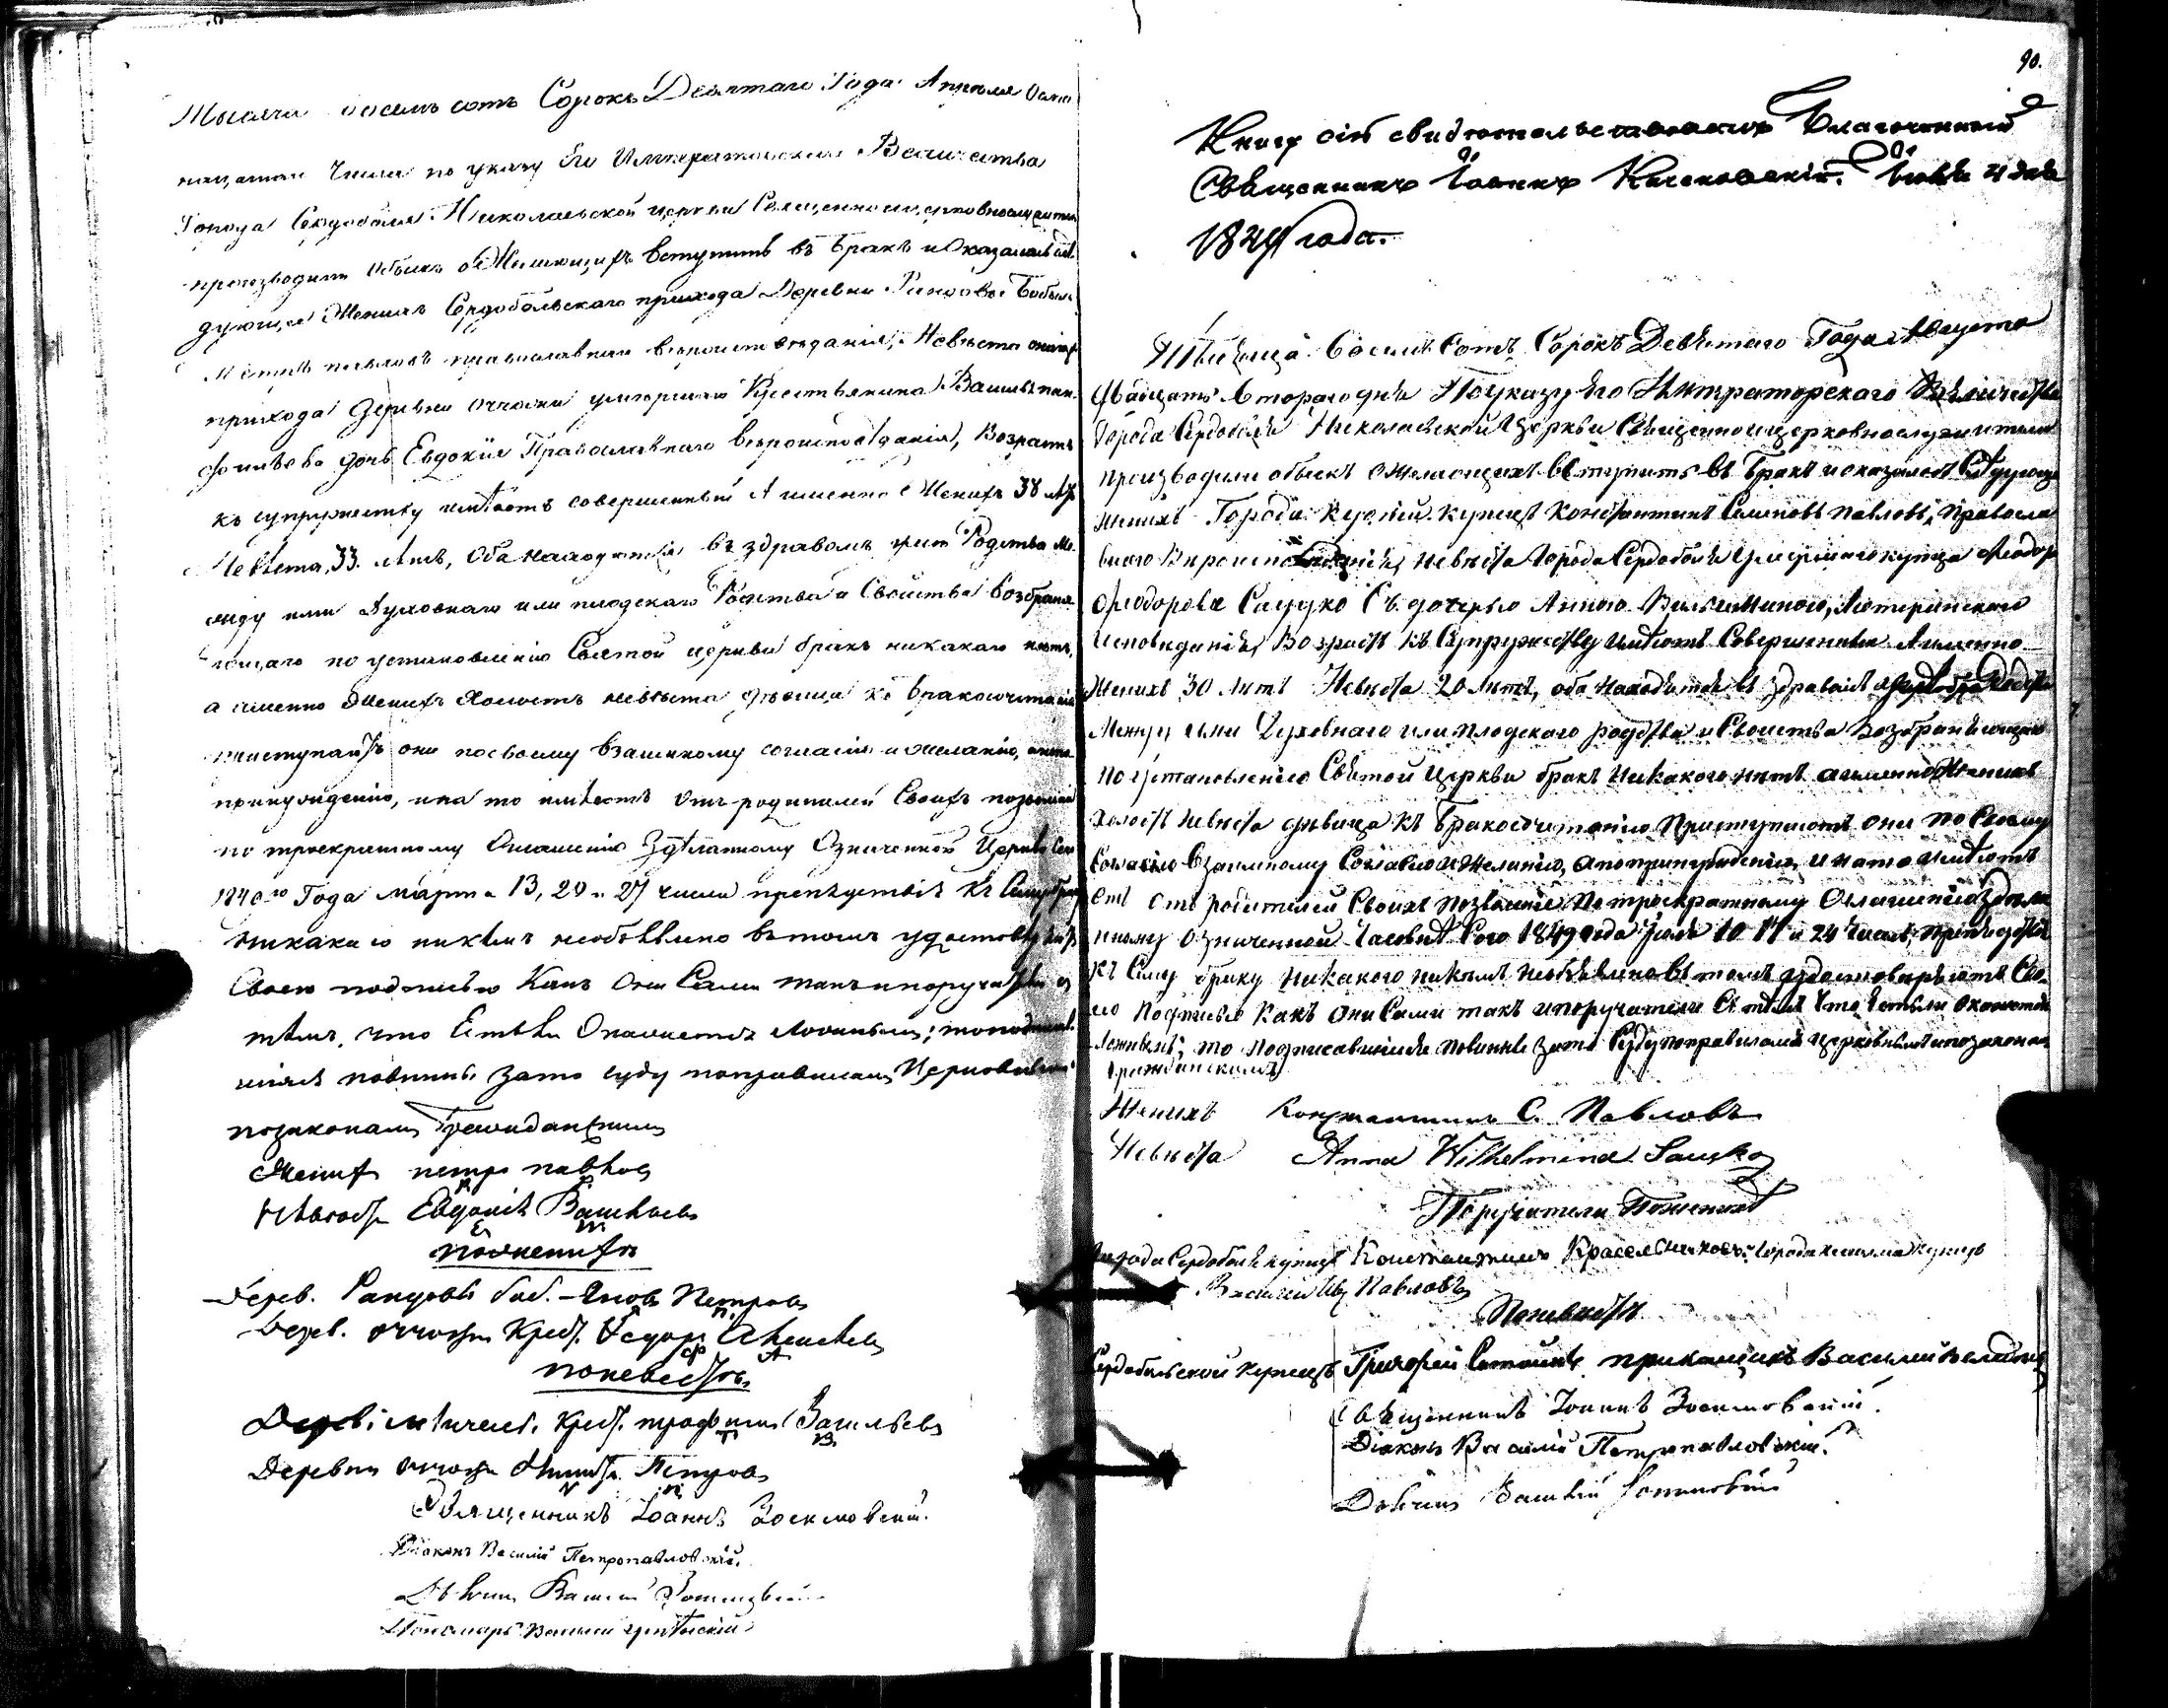 Тысяча восемь сотъ Сорокъ Девятаго Года Апреля Осмн
надцатаго Числа по указу Его Императорскаго Величества
Города Сердоболя Николаевской церкви Священно и церковнослужители
производили обыскъ о Желающихъ вступить въ бракъ и Оказалось слѣ
дующее Женихъ Сердобольскаго прихода Деревни Бобыль
Петръ православнаго вероисповѣданія, Невѣста онаго
прихода деревни оччоины умершаго Крестьянина
дочь Евдокія Православнаго вероисповѣданія, Возрастъ
къ супружеству имѣютъ совершенный А именно Женихъ 38 лѣтъ
Невѣста, 33. лѣтъ, Оба находятся въ здравомъ Родства Ме
жду ими Духовнаго или плодскаго Родства и Свойства возбраня
ющаго по установленію Святой церкви бракъ никакаго нѣтъ,
а именно Женихъ Холостъ невѣста дѣвица къ бракосочетанію
приступаютъ они по своему взаимному согласію и желанію, а не по
принужденію, и на то имѣютъ отъ родителей Своихъ позволеніе
по троекратному Оглашенію Здѣланному Означенной Церкви Сего
Года марта 13, 20 и 27 числа препятствія къ Сему браку
Никакаго никѣмъ необъявлено въ томъ удостовѣряютъ
Своею подписью Какъ Они Сами такъ и поручители съ
тѣмъ, что Естьли Окажется ложнымъ; то подписав
шіяся повинны зато суду по правиламъ Церковнымъ
по законамъ Гражданскимъ
Женихъ петръ павлов
Невѣста Евдокія Васильева
по женихѣ
Дерев. боб. Яковъ Петровъ
Дерев. оччоины Крест. Ѳедоръ Алексѣев
по невестѣ
Дерев. Крест. трофимъ Васильевъ
Деревни оччоины Петровъ
Священникъ Іоаннъ Зосимовскій.
Діаконъ Василій Петропавловскій.
Дьячекъ Василій
Пономарь Василій
90.
Книгу сію свидѣтельствовалъ Благочинный
Священникъ Іоаннъ Іюля 4 дня
1849 года.
Тысяща Восемь Сотъ Сорокъ Девятаго Года Августа
Двадцать Втораго дня По указу Его Императорскаго Величества
Города Сердоболя Николаевской Церкви Священно и церковнослужители
производили обыскъ о желающихъ вступить въ бракъ и оказалось Слѣдующее
женихъ Города купецъ Константинъ Семеновъ павловъ, Правосла
внаго Вѣроисповѣданія, невѣста Города Сердоболя умершаго купца Ѳеодор
Ѳеодорова Сацуко Съ дочерью Анною Вильгелминою, Лютеранскаго
Исповѣданія, Возрастъ къ Супружеству имѣютъ Совершенный А именно
Женихъ 30 лѣтъ Невѣста 20 лѣтъ, оба находятся въ здравомъ
Между ими Духовнаго или плодскаго родства и Свойства Возбраняющаго
по установленію Святой церкви бракъ никакого нѣтъ а именно Женихъ
холостъ невѣста дѣвица къ бракосочетанію Приступаютъ они по Своему
взаимному Согласію и желанію, а не по принужденію, и на то имѣютъ
отъ родителей Своихъ позволеніе, По троекратному Оглашенію здѣла
нному Означенной Сего 1849 года Іюля 10 17 и 24 числъ, препятствія
къ Сему браку никакого никѣмъ необъявлено въ томъ удостоверяютъ Сво
ею Подписью Какъ они Сами такъ и поручители Съ тѣмъ что Естьли окажется
Ложнымъ; то подписавшіеся повинны зато Суду по правиламъ церковнымъ и по законамъ
гражданскимъ
Женихъ Константинъ С. Павловъ
Невѣста Anna Wilhelmina Sautzko
Поручатели По женихѣ
Города Сердоболя купецъ Константинъ Красельниковъ. города купецъ
Василий Ив Павловъ
По невѣстѣ
Сердобольской купецъ Григорей прикащикъ Василий
Священникъ Іоаннъ Зосимовскій.
Діаконъ Василій Петропавловскій.
Дьячекъ Василій